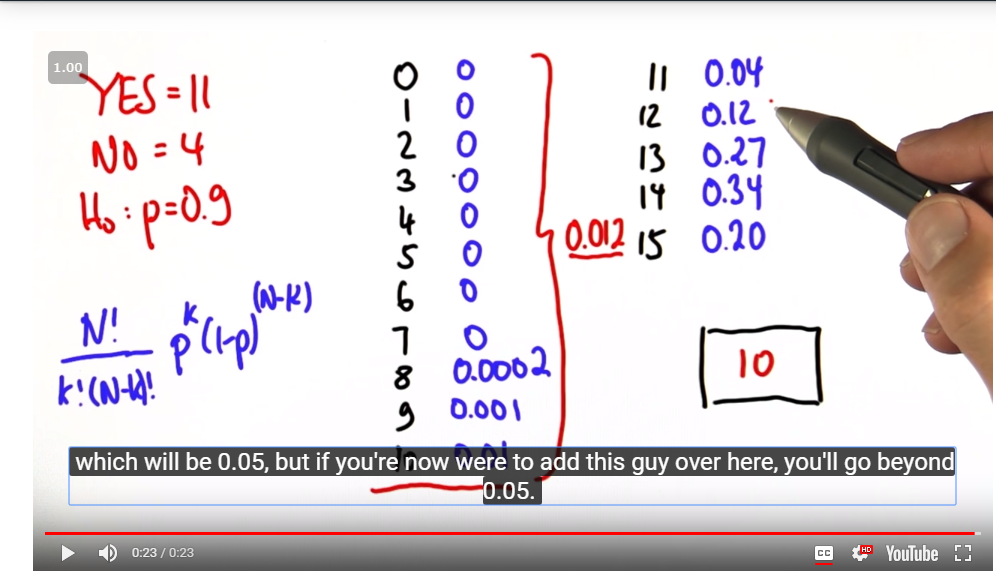 1.00
YES = 11
NO = 4
H₀ : p=0.9
N!
k!(N-k)!
p^k (1-p)^(N-k)
0 0
1 0
2 0
3 0
4 0
5 0
6 0
7 0
8 0.0002
9 0.001
10 0.01
0.012
11 0.04
12 0.12
13 0.27
14 0.34
15 0.20
10
which will be 0.05, but if you're now were to add this guy over here, you'll go beyond
0.05.
0:23 / 0:23
CC
HD
YouTube